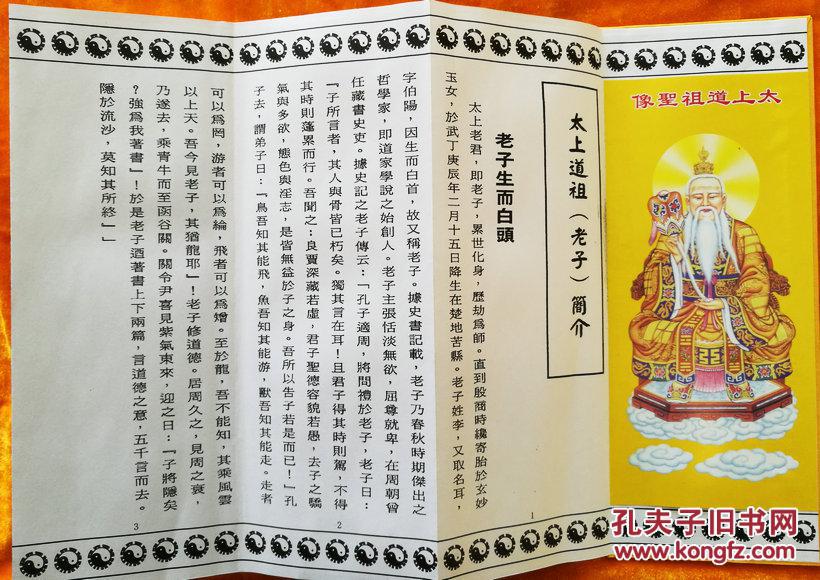 太上道祖聖像
太上道祖（老子）簡介
老子生而白頭
太上老君，即老子，累世化身，歷劫為師。直到殷商時纔寄胎於玄妙
玉女，於武丁庚辰年二月十五日降生在楚地苦縣。老子姓李，又取名耳，
1
字伯陽，因生而白首，故又稱老子。據史書記載，老子乃春秋時期傑出之
哲學家，即道家學說之始創人。老子主張恬淡無欲，屈尊就卑，在周朝曾
任藏書史吏。據史記之老子傳云：「孔子適周，將問禮於老子，老子曰：
『子所言者，其人與骨皆已朽矣。獨其言在耳！且君子得其時則駕，不得
2
其時則蓬累而行。吾聞之：良賈深藏若虛，君子聖德容貌若愚，去子之驕
氣與多欲，態色與淫志，是皆無益於子之身。吾所以告子若是而已！』孔
子去，謂弟子曰：『鳥吾知其能飛，魚吾知其能游，獸吾知其能走。走者
可以為罔，游者可以為綸，飛者可以為矰。至於龍，吾不能知，其乘風雲
以上天。吾今見老子，其猶龍耶』！老子修道德。居周久之，見周之衰，
乃遂去，乘青牛而至函谷關。關令尹喜見紫氣東來，迎之曰：『子將隱矣
？強為我著書』！於是老子迺著書上下兩篇，言道德之意，五千言而去。
隱於流沙，莫知其所終』」
3
孔夫子旧书网
www.kongfz.com